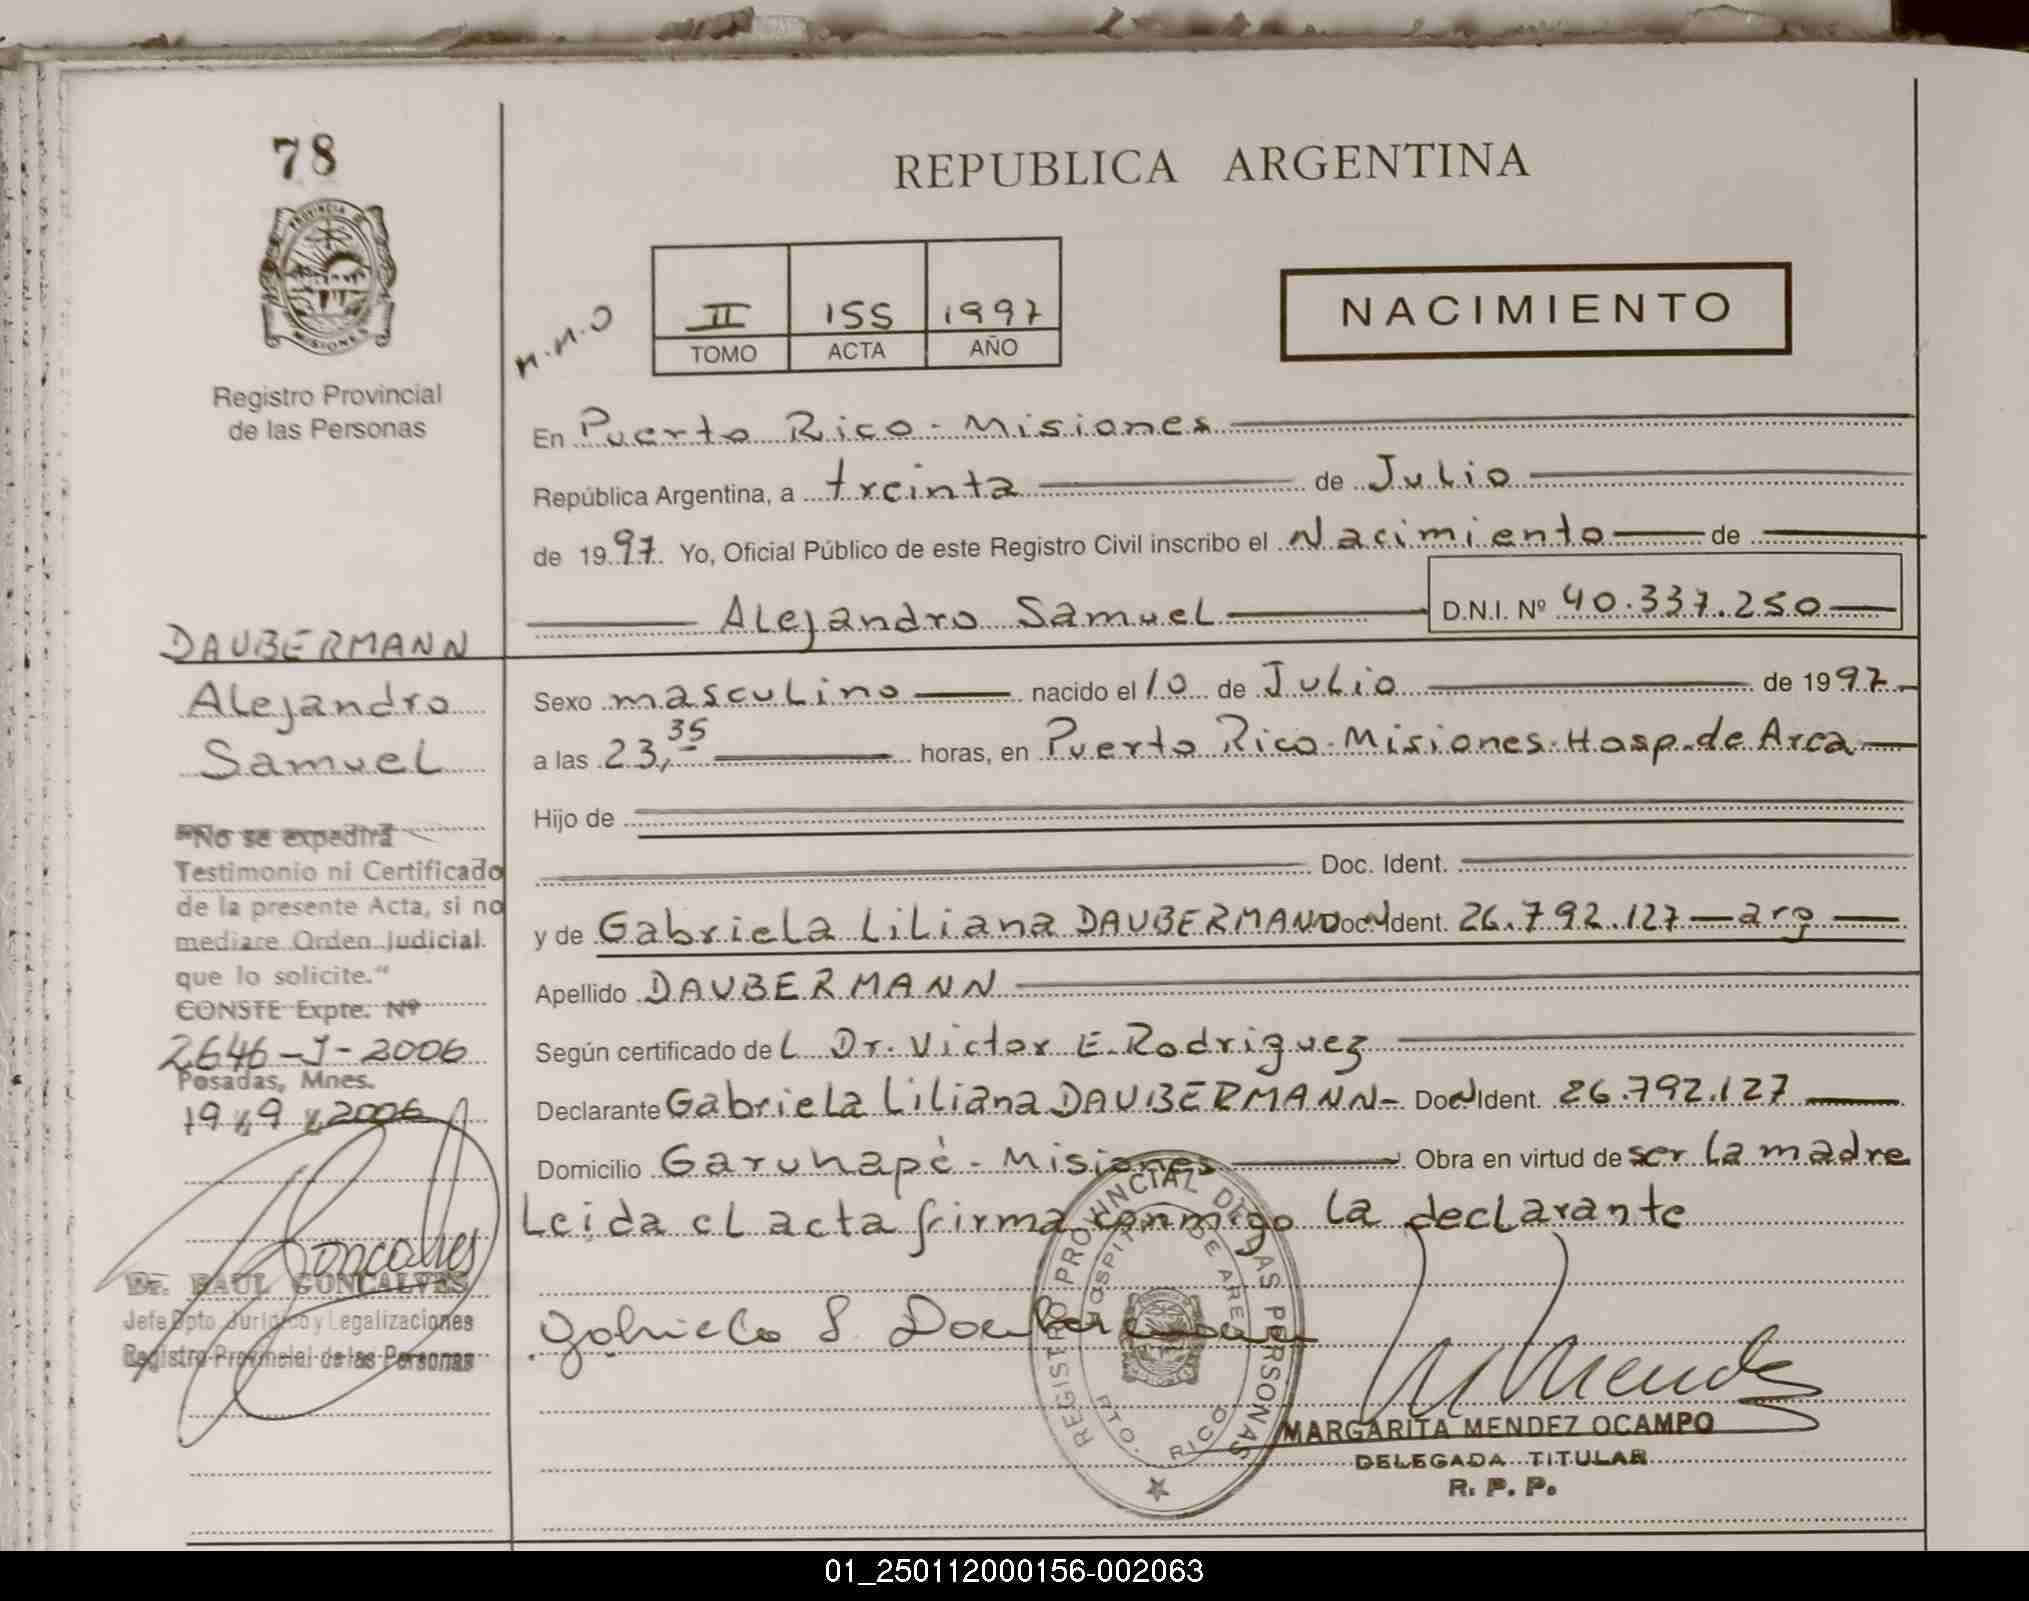 78
REPUBLICA ARGENTINA
PROVINCIA DE MISIONES
Registro Provincial
de las Personas
II 155 1997
TOMO ACTA AÑO
NACIMIENTO
En Puerto Rico - Misiones
República Argentina, a treinta de Julio
de 1997. Yo, Oficial Público de este Registro Civil inscribo el Nacimiento de
Alejandro Samuel D.N.I. Nº 40.337.250
Sexo masculino nacido el 10 de Julio de 1997
a las 23,35 horas, en Puerto Rico - Misiones - Hosp. de Area
Hijo de
Doc. Ident.
y de Gabriela Liliana DAUBERMANN Doc. Ident. 26.792.127 - arg
Apellido DAUBERMANN
Según certificado del Dr. Victor E. Rodriguez
Declarante Gabriela Liliana DAUBERMANN - Doc. Ident. 26.792.127
Domicilio Garuhapé - Misiones Obra en virtud de ser la madre
Leida el acta firma conmigo la declarante
DAUBERMANN
Alejandro
Samuel
"No se expedirá
Testimonio ni Certificado
de la presente Acta, si no
mediare Orden Judicial
que lo solicite."
CONSTE Expte. Nº
2646-J-2006
Posadas, Mnes.
19 9 2006
Goncalves
Dr. RAUL GONCALVES
Jefe Dpto Jurídico y Legalizaciones
Registro Provincial de las Personas
Gabriela L. Daubermann
REGISTRO PROVINCIAL DE LAS PERSONAS
HOSPITAL DE AREA
PTO. RICO
M Mendez
MARGARITA MENDEZ OCAMPO
DELEGADA TITULAR
R. P. P.
01_250112000156-002063